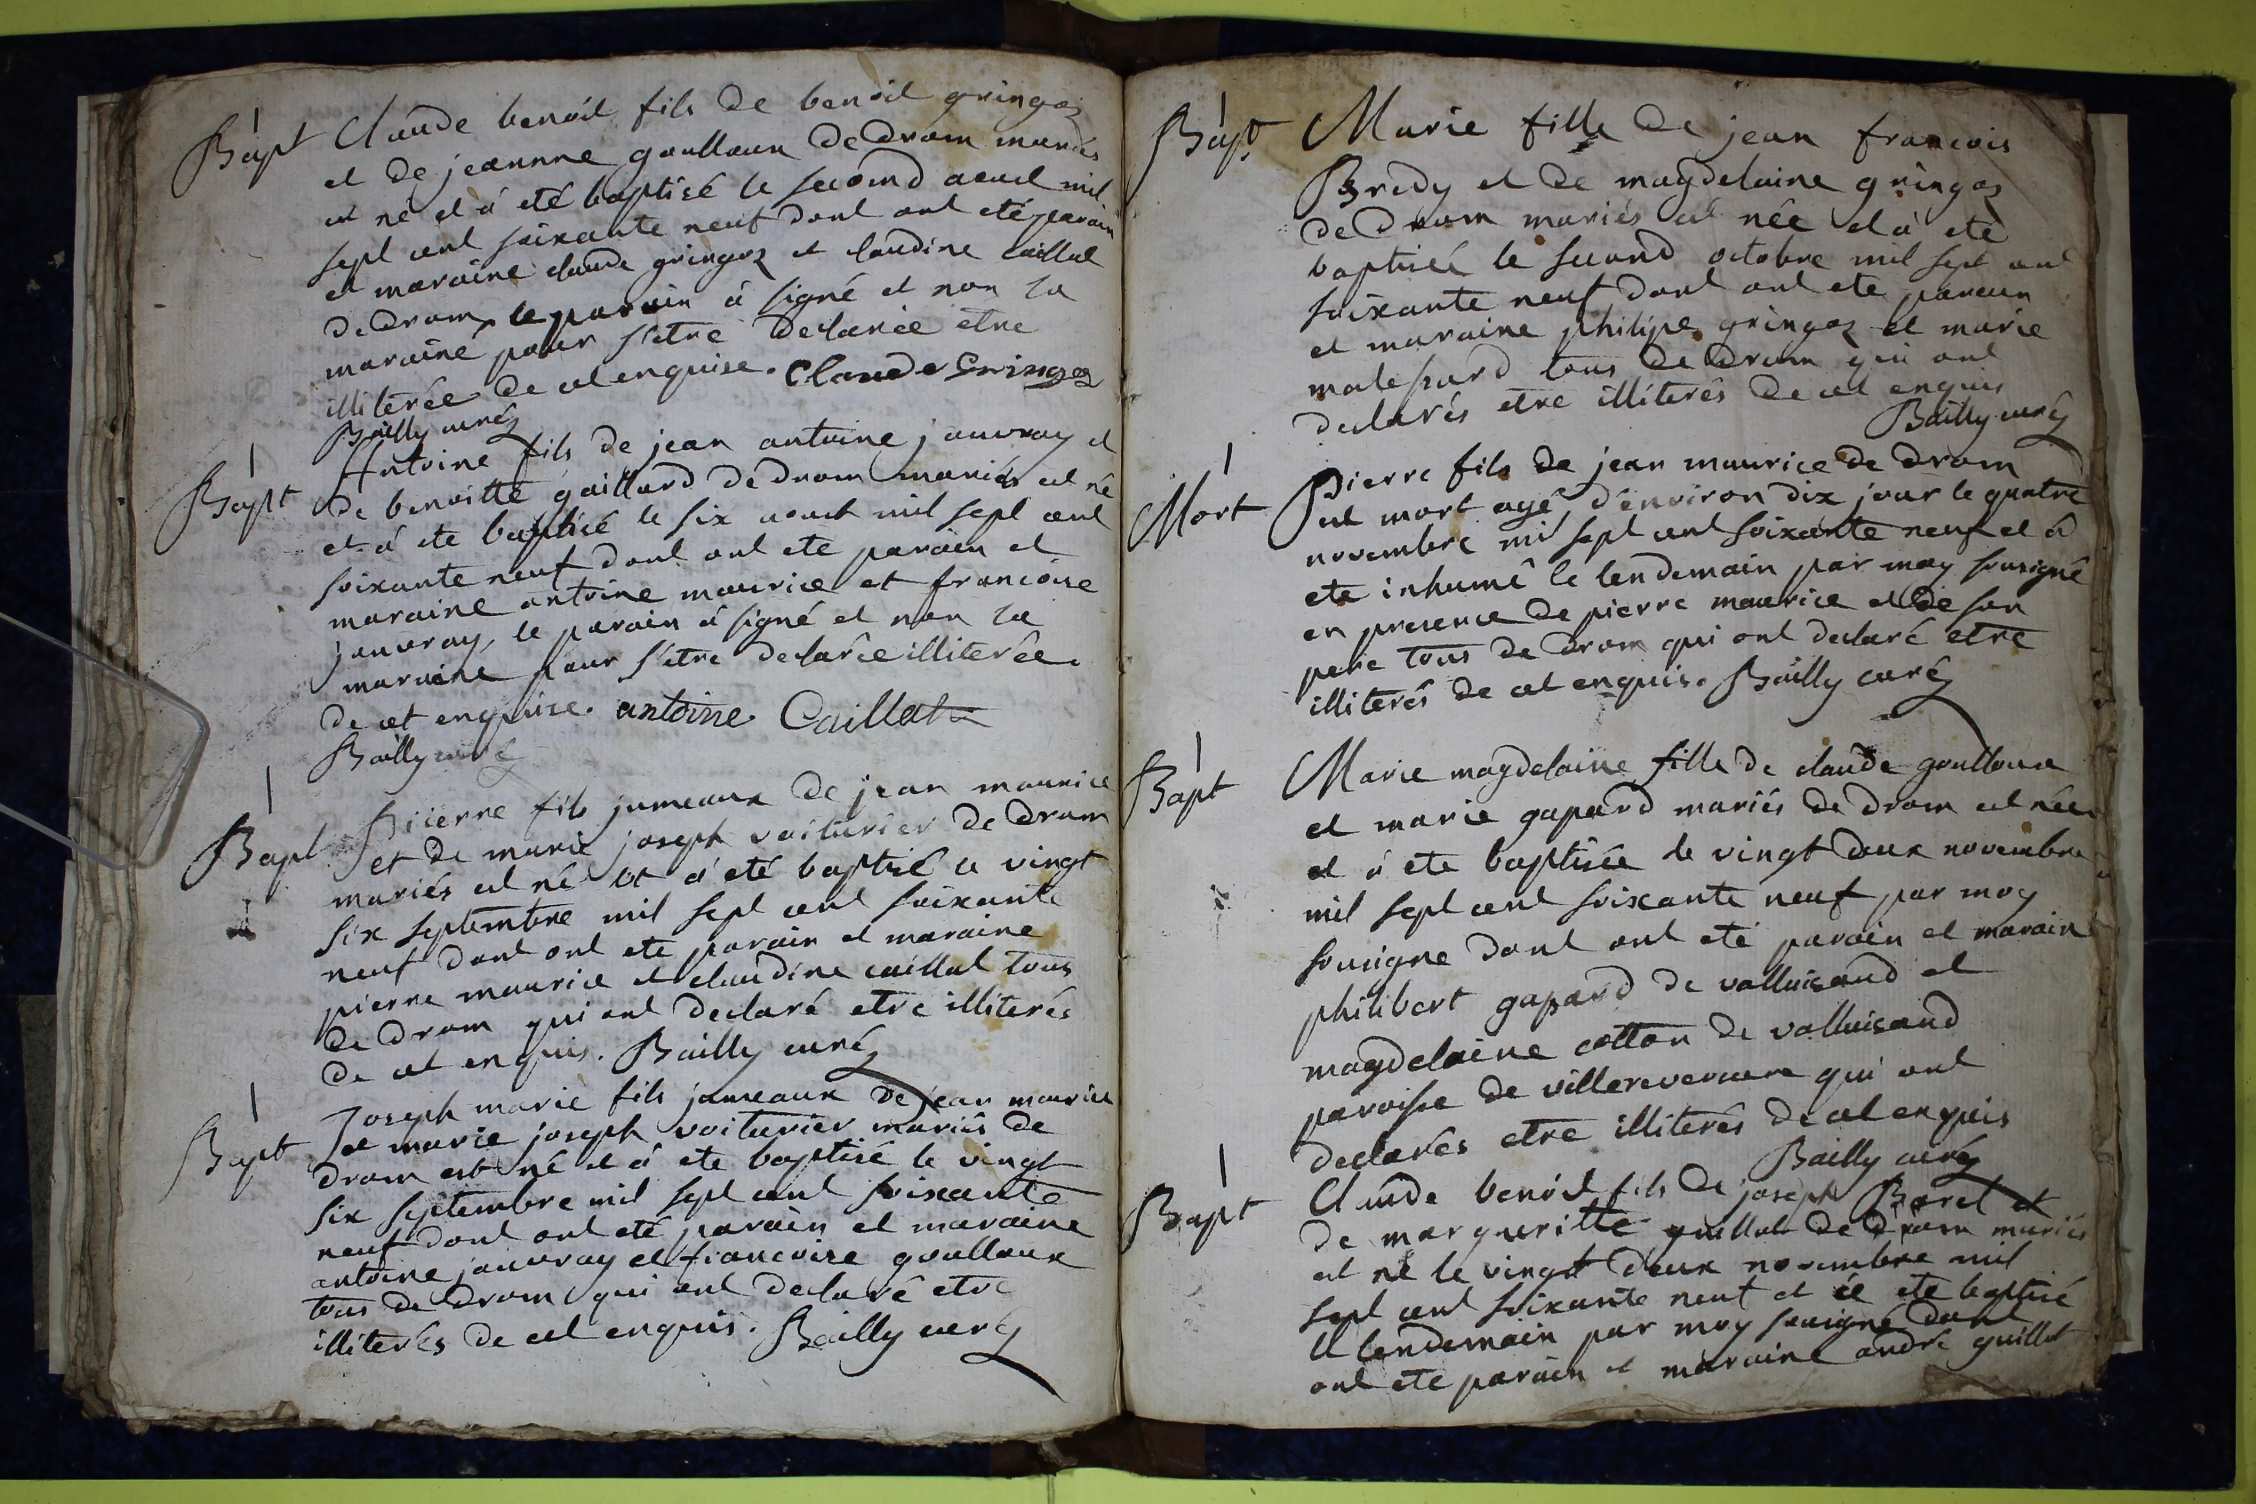 Bapt Claude benoit fils de benoit gringoz
et de jeannne goulloux de drom mariés
est né et à eté baptisé le second aoust mil
sept cent soixante neuf dont ont eté parain
et maraine claude gringoz et claudine caillat
de drom, le parain à signé et non la
maraine pour s'etre declarée etre
illiterée de cet enquise. Claude Gringoz
Bailly curé
Bapt Antoine fils de jean antoine jauvray et
de benoitte gaillard de drom mariés est né
et à ete baptisé le six aoust mil sept cent
soixante neuf dont ont ete parain et
maraine antoine maurice et francoise
jauvray, le parain à signé et non la
maraine pour s'etre declarêe illiterêe
de cet enquise. antoine Caillat
Bailly curé
Bapt Piierre fils jumeaux de jean maurice
et de marie joseph voiturier de drom
mariés est né et à eté baptisé le vingt
six septembre mil sept cent soixante
neuf dont ont ete parain et maraine
pierre maurice et claudine caillat tous
de drom qui ont declaré etre illiterés
de cet enquis. Bailly curé
Bapt Joseph marie fils jumeaux de jean maurice
et marie joseph voiturier mariés de
drom est né et à ete baptisé le vingt
six septembre mil sept cent soixante
neuf dont ont eté parain et maraine
antoine jauvray et francoise goulloux
tous de drom qui ont declaré etre
illiterés de cet enquis. Bailly curé
Bapt Marie fille de jean francois
Bredy et de magdelaine gringoz
de drom mariés est née et à ete
baptisée le second octobre mil sept cent
soixante neuf dont ont ete parain
et maraine philipe gringoz et marie
tous de drom qui ont
declarés etre illiterés de cet enquis
Bailly curé
Mort Pierre fils de jean maurice de drom
est mort agé d'environ dix jour le quatre
novembre mil sept cent soixante neuf et à
ete inhumé le lendemain par moy sousigné
en presence de pierre maurice et de son
pere tous de drom qui ont declaré etre
illiterés de cet enquis. Bailly curé
Bapt Marie magdelaine fille de claude goulloux
et marie gapard mariés de drom est née
et à ete baptisée le vingt deux novembre
mil sept cent soixante neuf par moy
sousigne dont ont eté parain et marain
philibert gapard de valluisand et
magdelaine cotton de valluisand
paroisse de villereversure qui ont
declarés etre illiterés de cet enquis
Bailly curé
Bapt Claude benoit fils de joseph Borel et
de margueritte guillot de drom mariés
est né le vingt deux novembre mil
sept cent soixante neuf et à ete baptisé
le lendemain par moy sousigné dont
ont ete parain et maraine andré guillot